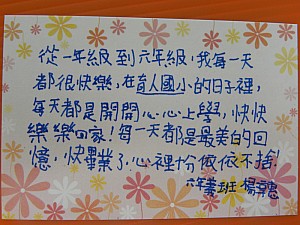 從一年級到六年級，我每一天
都很快樂，在育人國小的日子裡，
每天都是開開心心上學，快快
樂樂回家！每一天都是最美的回
憶，快畢業了，心裡十份依依不捨！
六年義班 楊